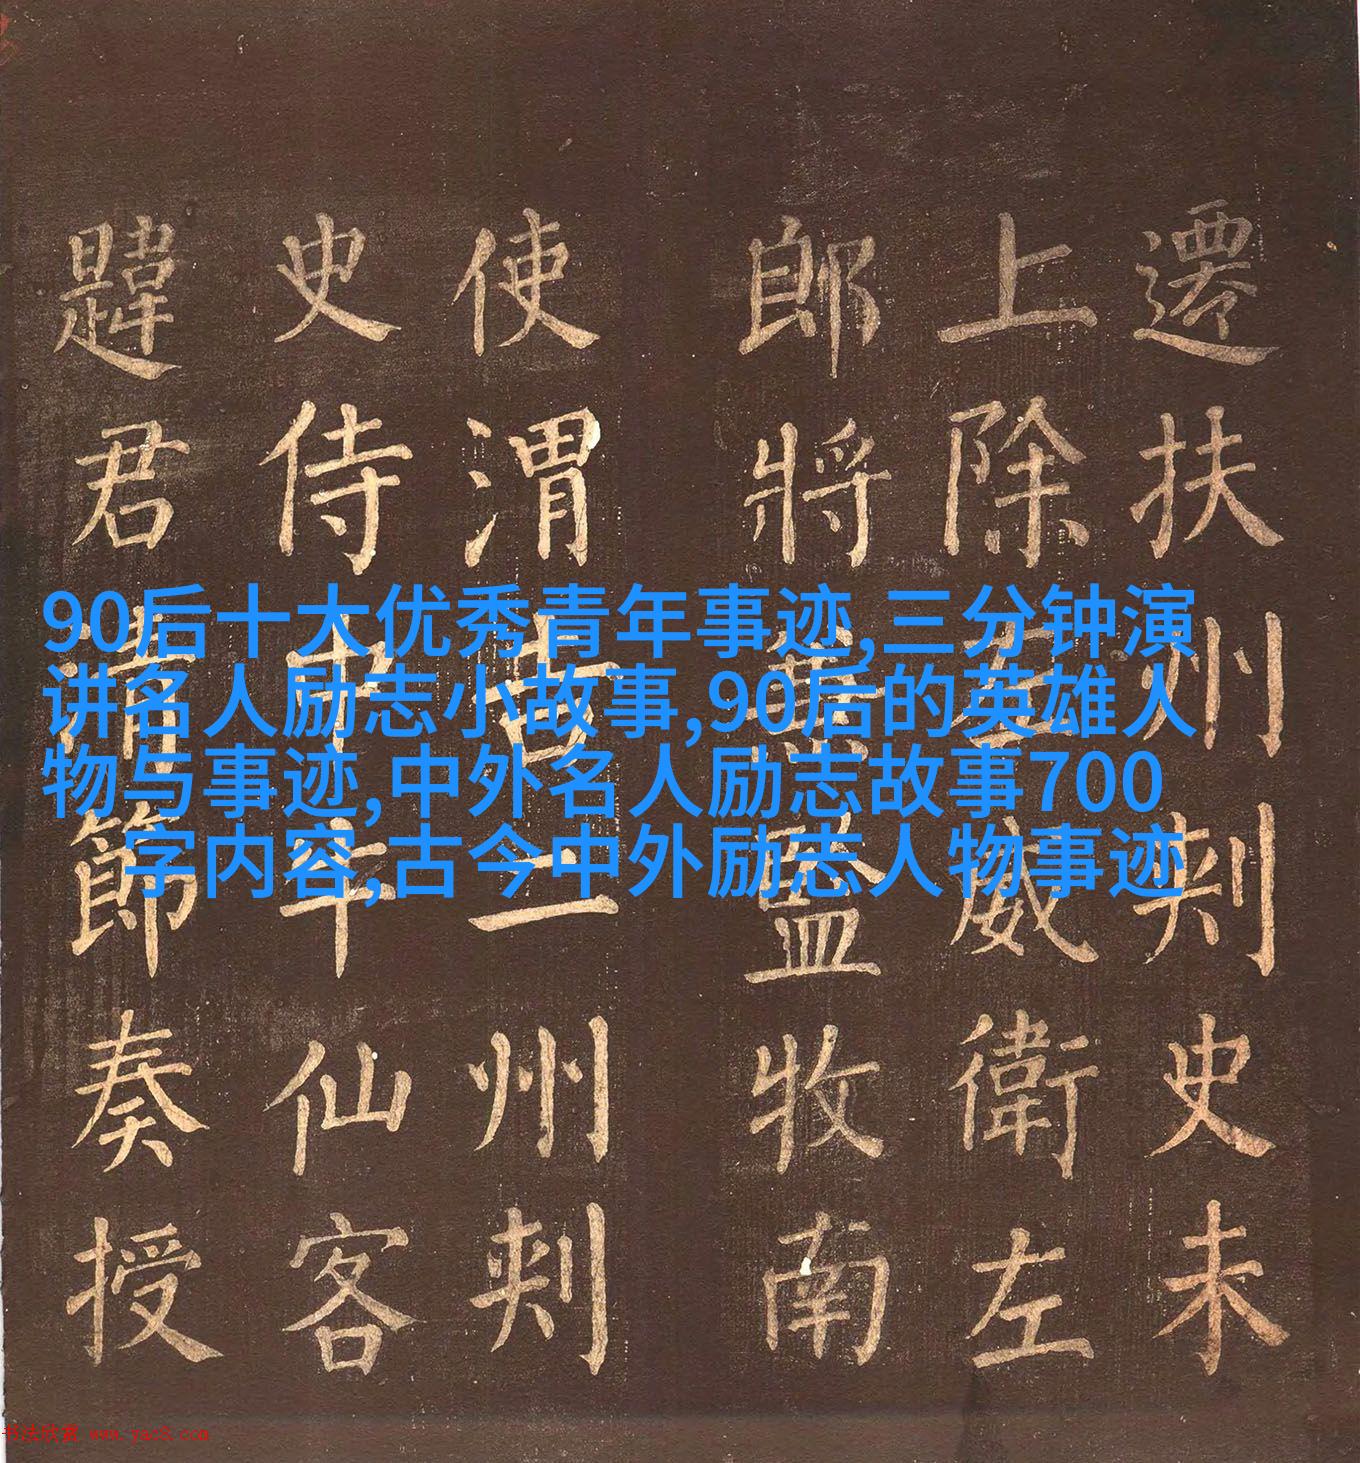 遷扶州刾史未
上除威衛左
郎將兼監牧南
使渭吉二州刾
史侍中牛仙客
韙君清節奏授
90后十大优秀青年事迹,三分钟演
讲名人励志小故事,90后的英雄人
物与事迹,中外名人励志故事700
字内容,古今中外励志人物事迹
书法欣赏 www.yac8.com